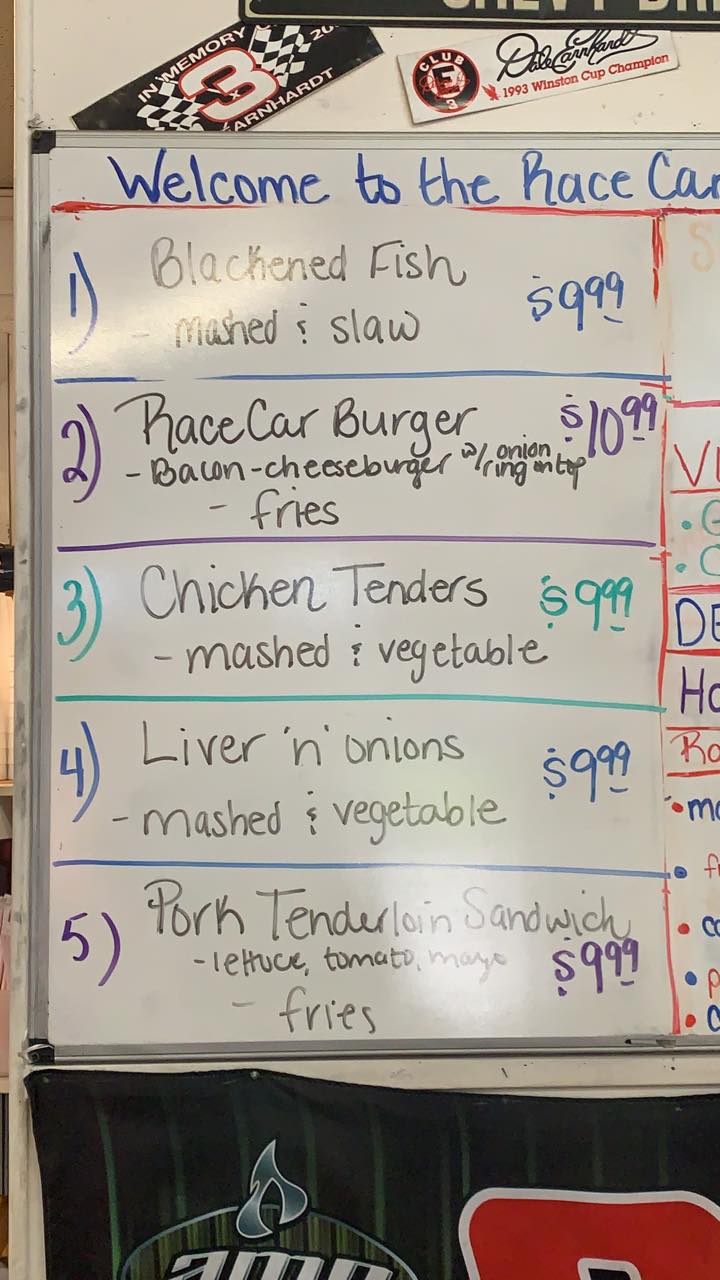 CHEVY
IN MEMORY
3
EARNHARDT
CLUB
E
3
Dale Earnhardt
1993 Winston Cup Champion
Welcome to the Race Car
1) Blackened Fish $9.99
- mashed & slaw
2) RaceCar Burger $10.99
- Bacon-cheeseburger w/ onion ring on top
- fries
3) Chicken Tenders $9.99
- mashed & vegetable
4) Liver 'n' onions $9.99
- mashed & vegetable
5) Pork Tenderloin Sandwich
- lettuce, tomato, mayo $9.99
- fries
amp